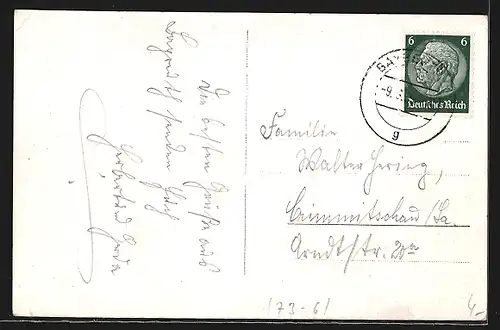 Die besten Grüße aus
Bayreuth senden Euch
Herbert und Gerda
6 6
Deutsches Reich
BAYREUTH
9.
g
Familie
Walter Hering,
Crimmitschau/Sa.
Arndtstr. 20a
173-61
4,-